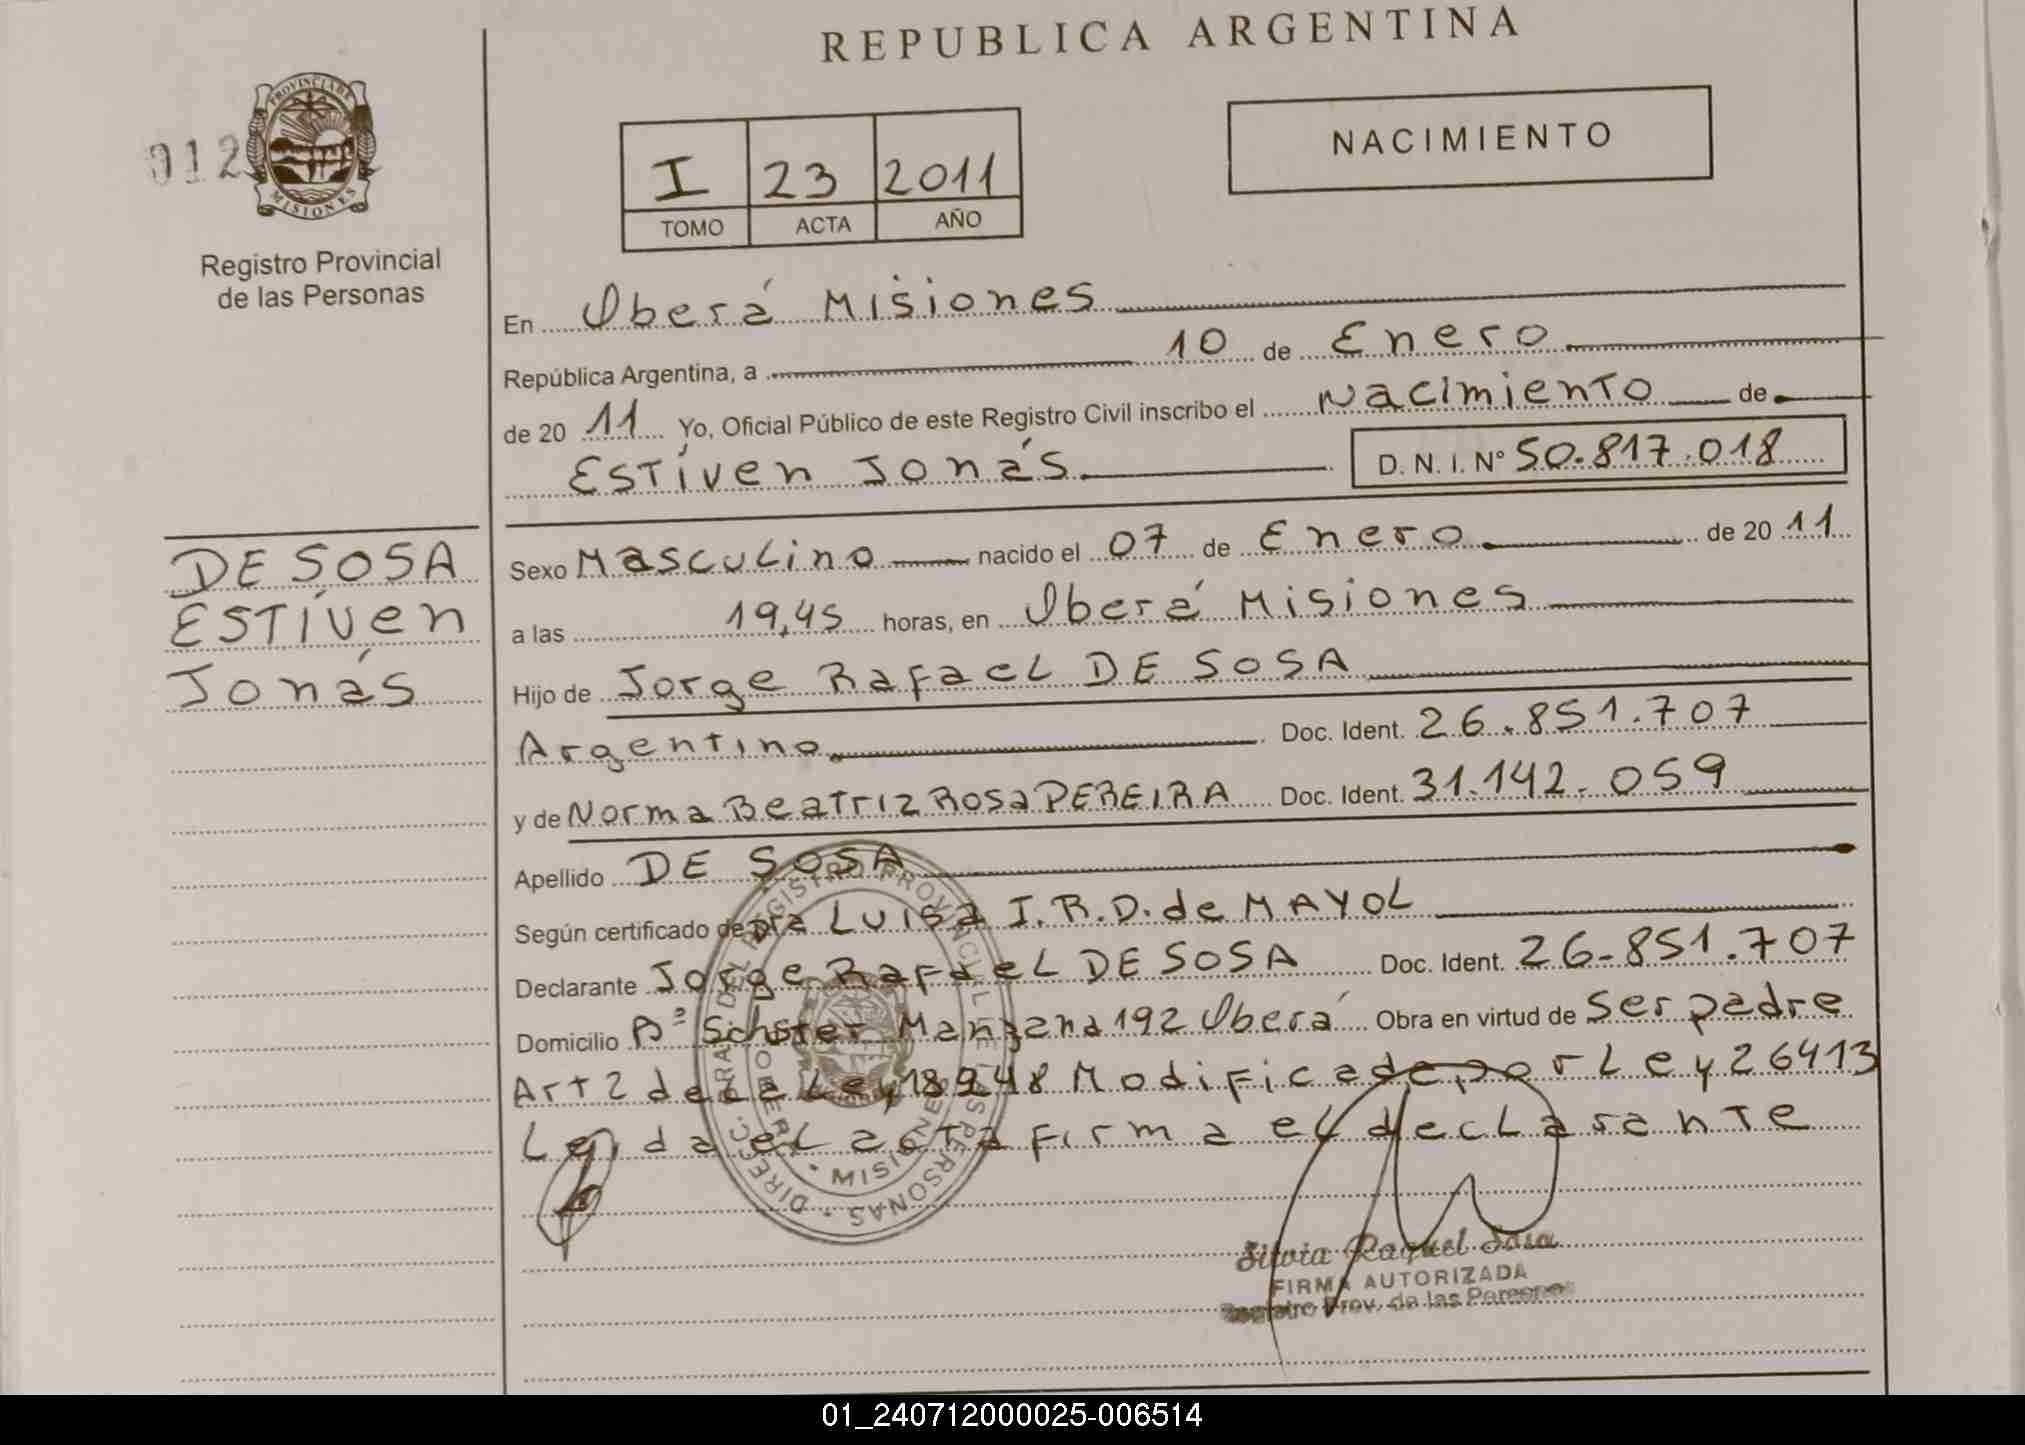 REPUBLICA ARGENTINA
NACIMIENTO
012
PROVINCIA DE
MISIONES
Registro Provincial
de las Personas
I 23 2011
TOMO ACTA AÑO
En Oberá Misiones
República Argentina, a 10 de Enero
de 20 11 Yo, Oficial Público de este Registro Civil inscribo el Nacimiento de
Estíven Jonás D. N. I. N° 50.817.018
DE SOSA
Estíven
Jonás
Sexo Masculino nacido el 07 de Enero de 20 11
a las 19,45 horas, en Oberá Misiones
Hijo de Jorge Rafael DE SOSA
Argentino Doc. Ident. 26.851.707
y de Norma Beatriz Rosa PEREIRA Doc. Ident. 31.142.059
Apellido DE SOSA
Según certificado de Dra Luisa I.R.D. de MAYOL
Declarante Jorge Rafael DE SOSA Doc. Ident. 26-851.707
Domicilio B° Schster Manzana 192 Oberá Obra en virtud de Ser padre
Art 2 de la Ley 18248 Modificada por Ley 26413
Leida el acta firma el declarante
DIRECC. GRAL. DEL REGISTRO PROVINCIAL DE LAS PERSONAS
MISIONES
Silvia Raquel Sosa
FIRMA AUTORIZADA
Registro Prov. de las Personas
01_240712000025-006514